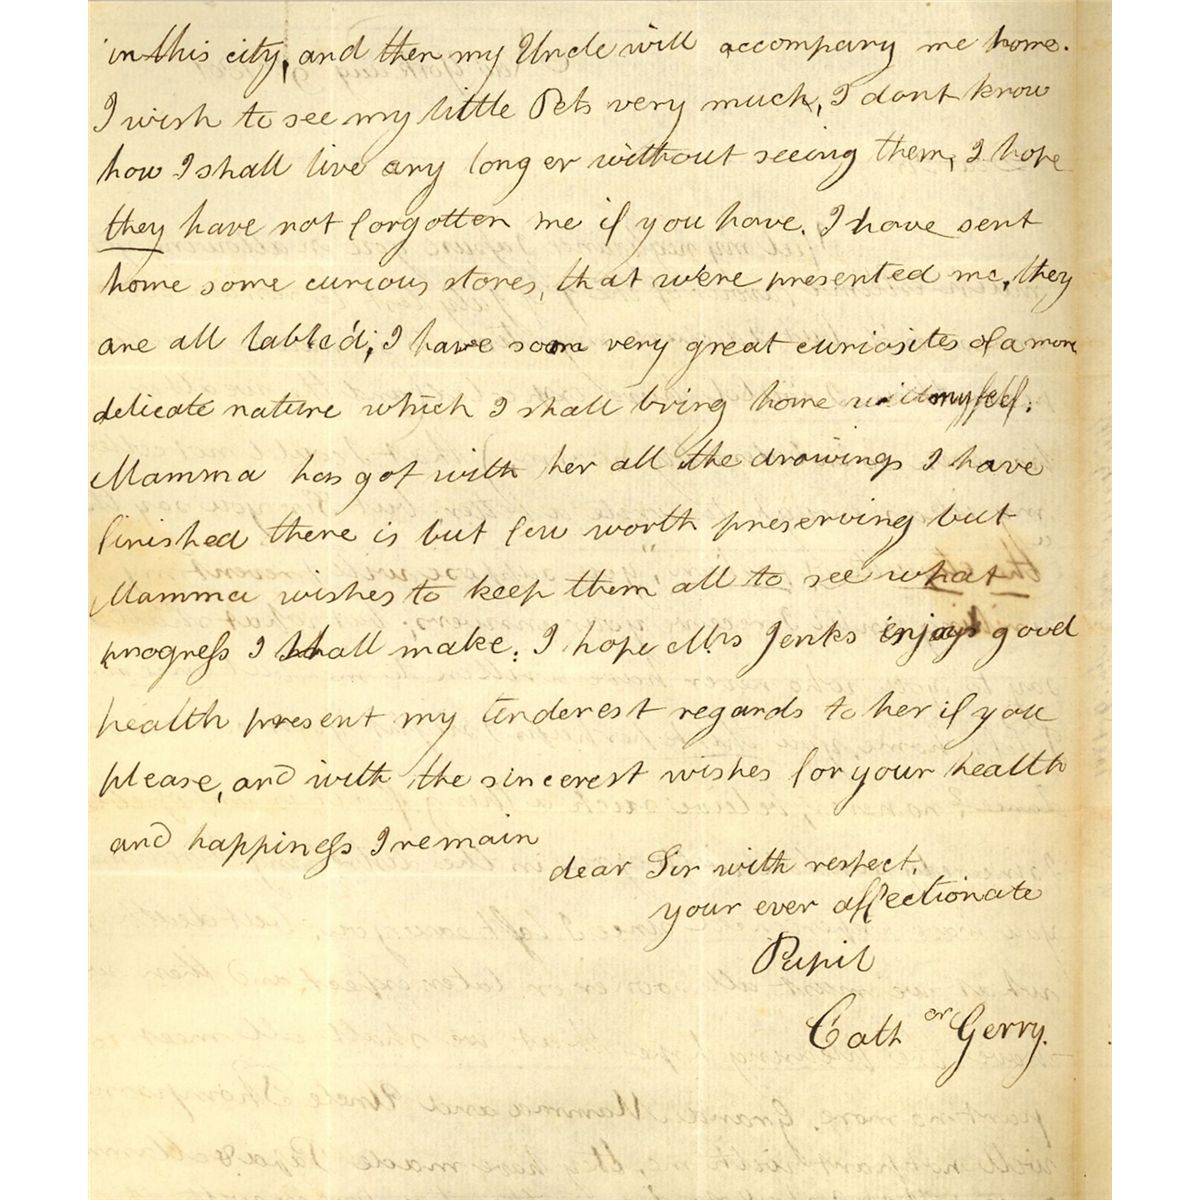 in this city, and then my Uncle will accompany me home.
I wish to see my little Pets very much, I dont know
how I shall live any longer without seeing them, I hope
they have not forgotten me if you have. I have sent
home some curious stones, that were presented me, they
are all lable'd; I have some very great curiosites of a more
delicate nature which I shall bring home with myself.
Mamma has got with her all the drawings I have
finished there is but few worth preserving but
Mamma wishes to keep them all to see what
progress I shall make. I hope Mrs Jenks enjoys good
health present my tenderest regards to her if you
please, and with the sincerest wishes for your health
and happiness I remain
dear Sir with respect,
your ever affectionate
Pupil
Cath er Gerry.